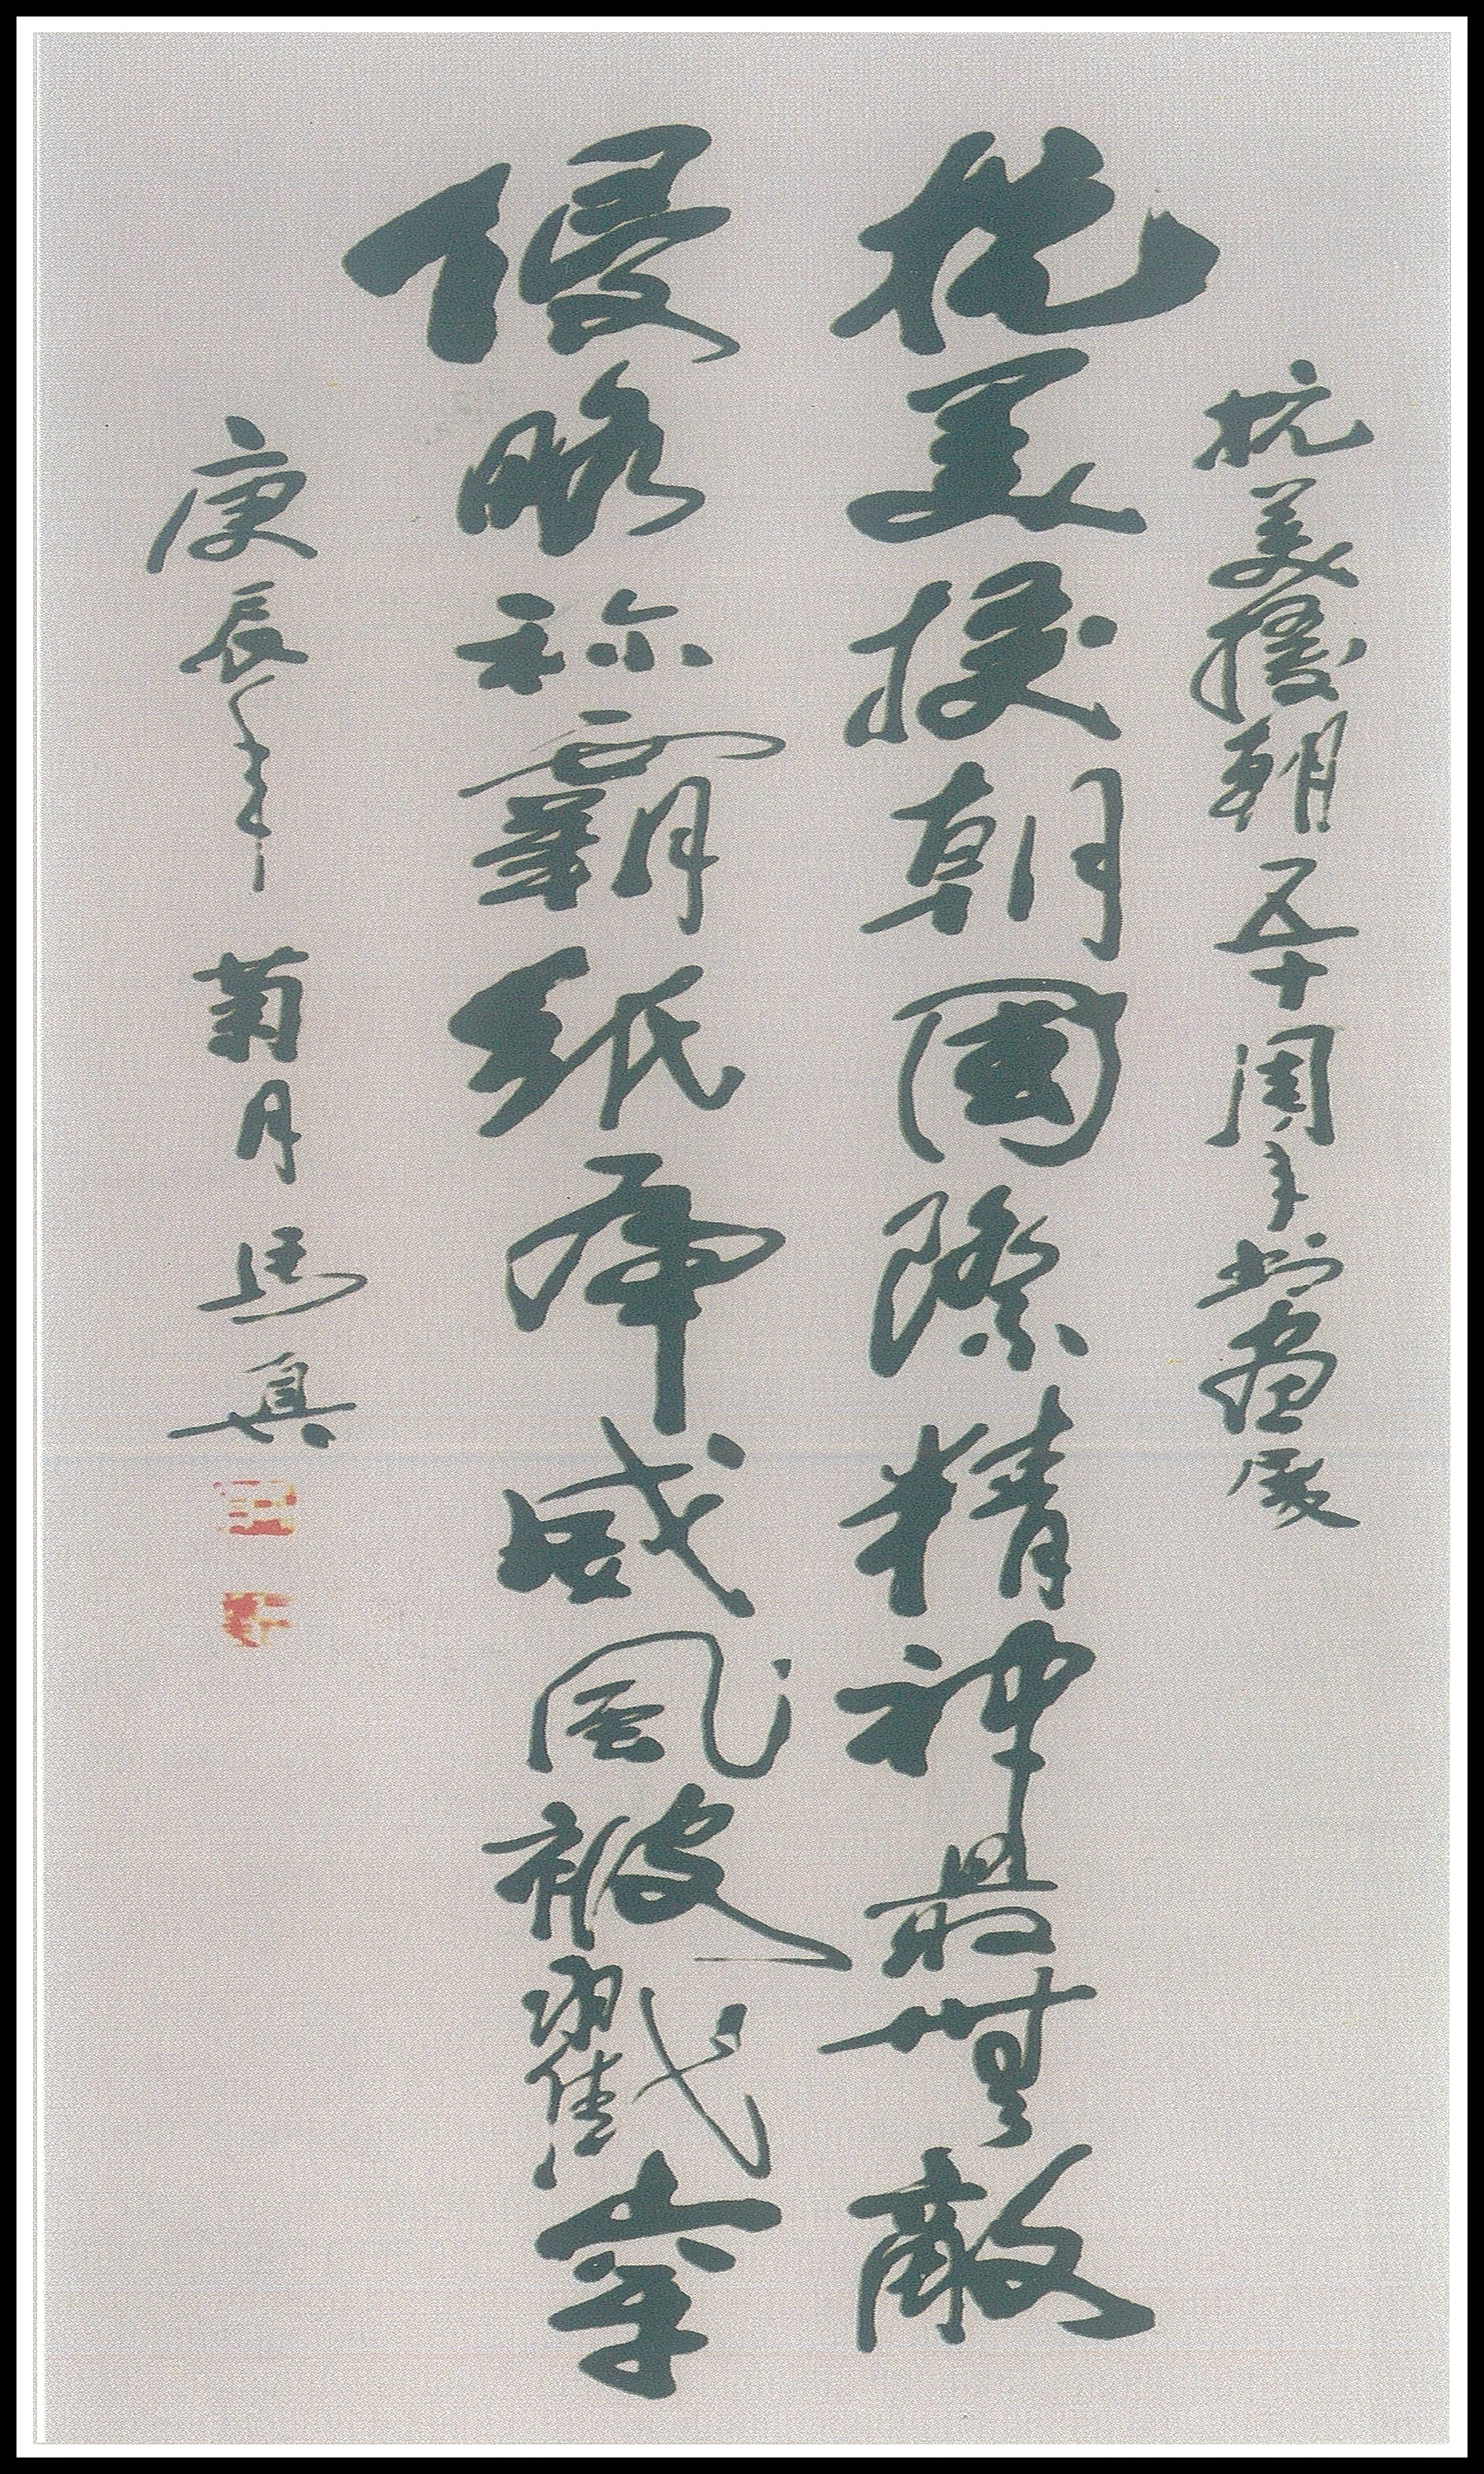 抗美援朝五十周年书画展
抗美援朝国际精神最无敌
侵略称霸纸虎威风被戳穿
庚辰年菊月马真